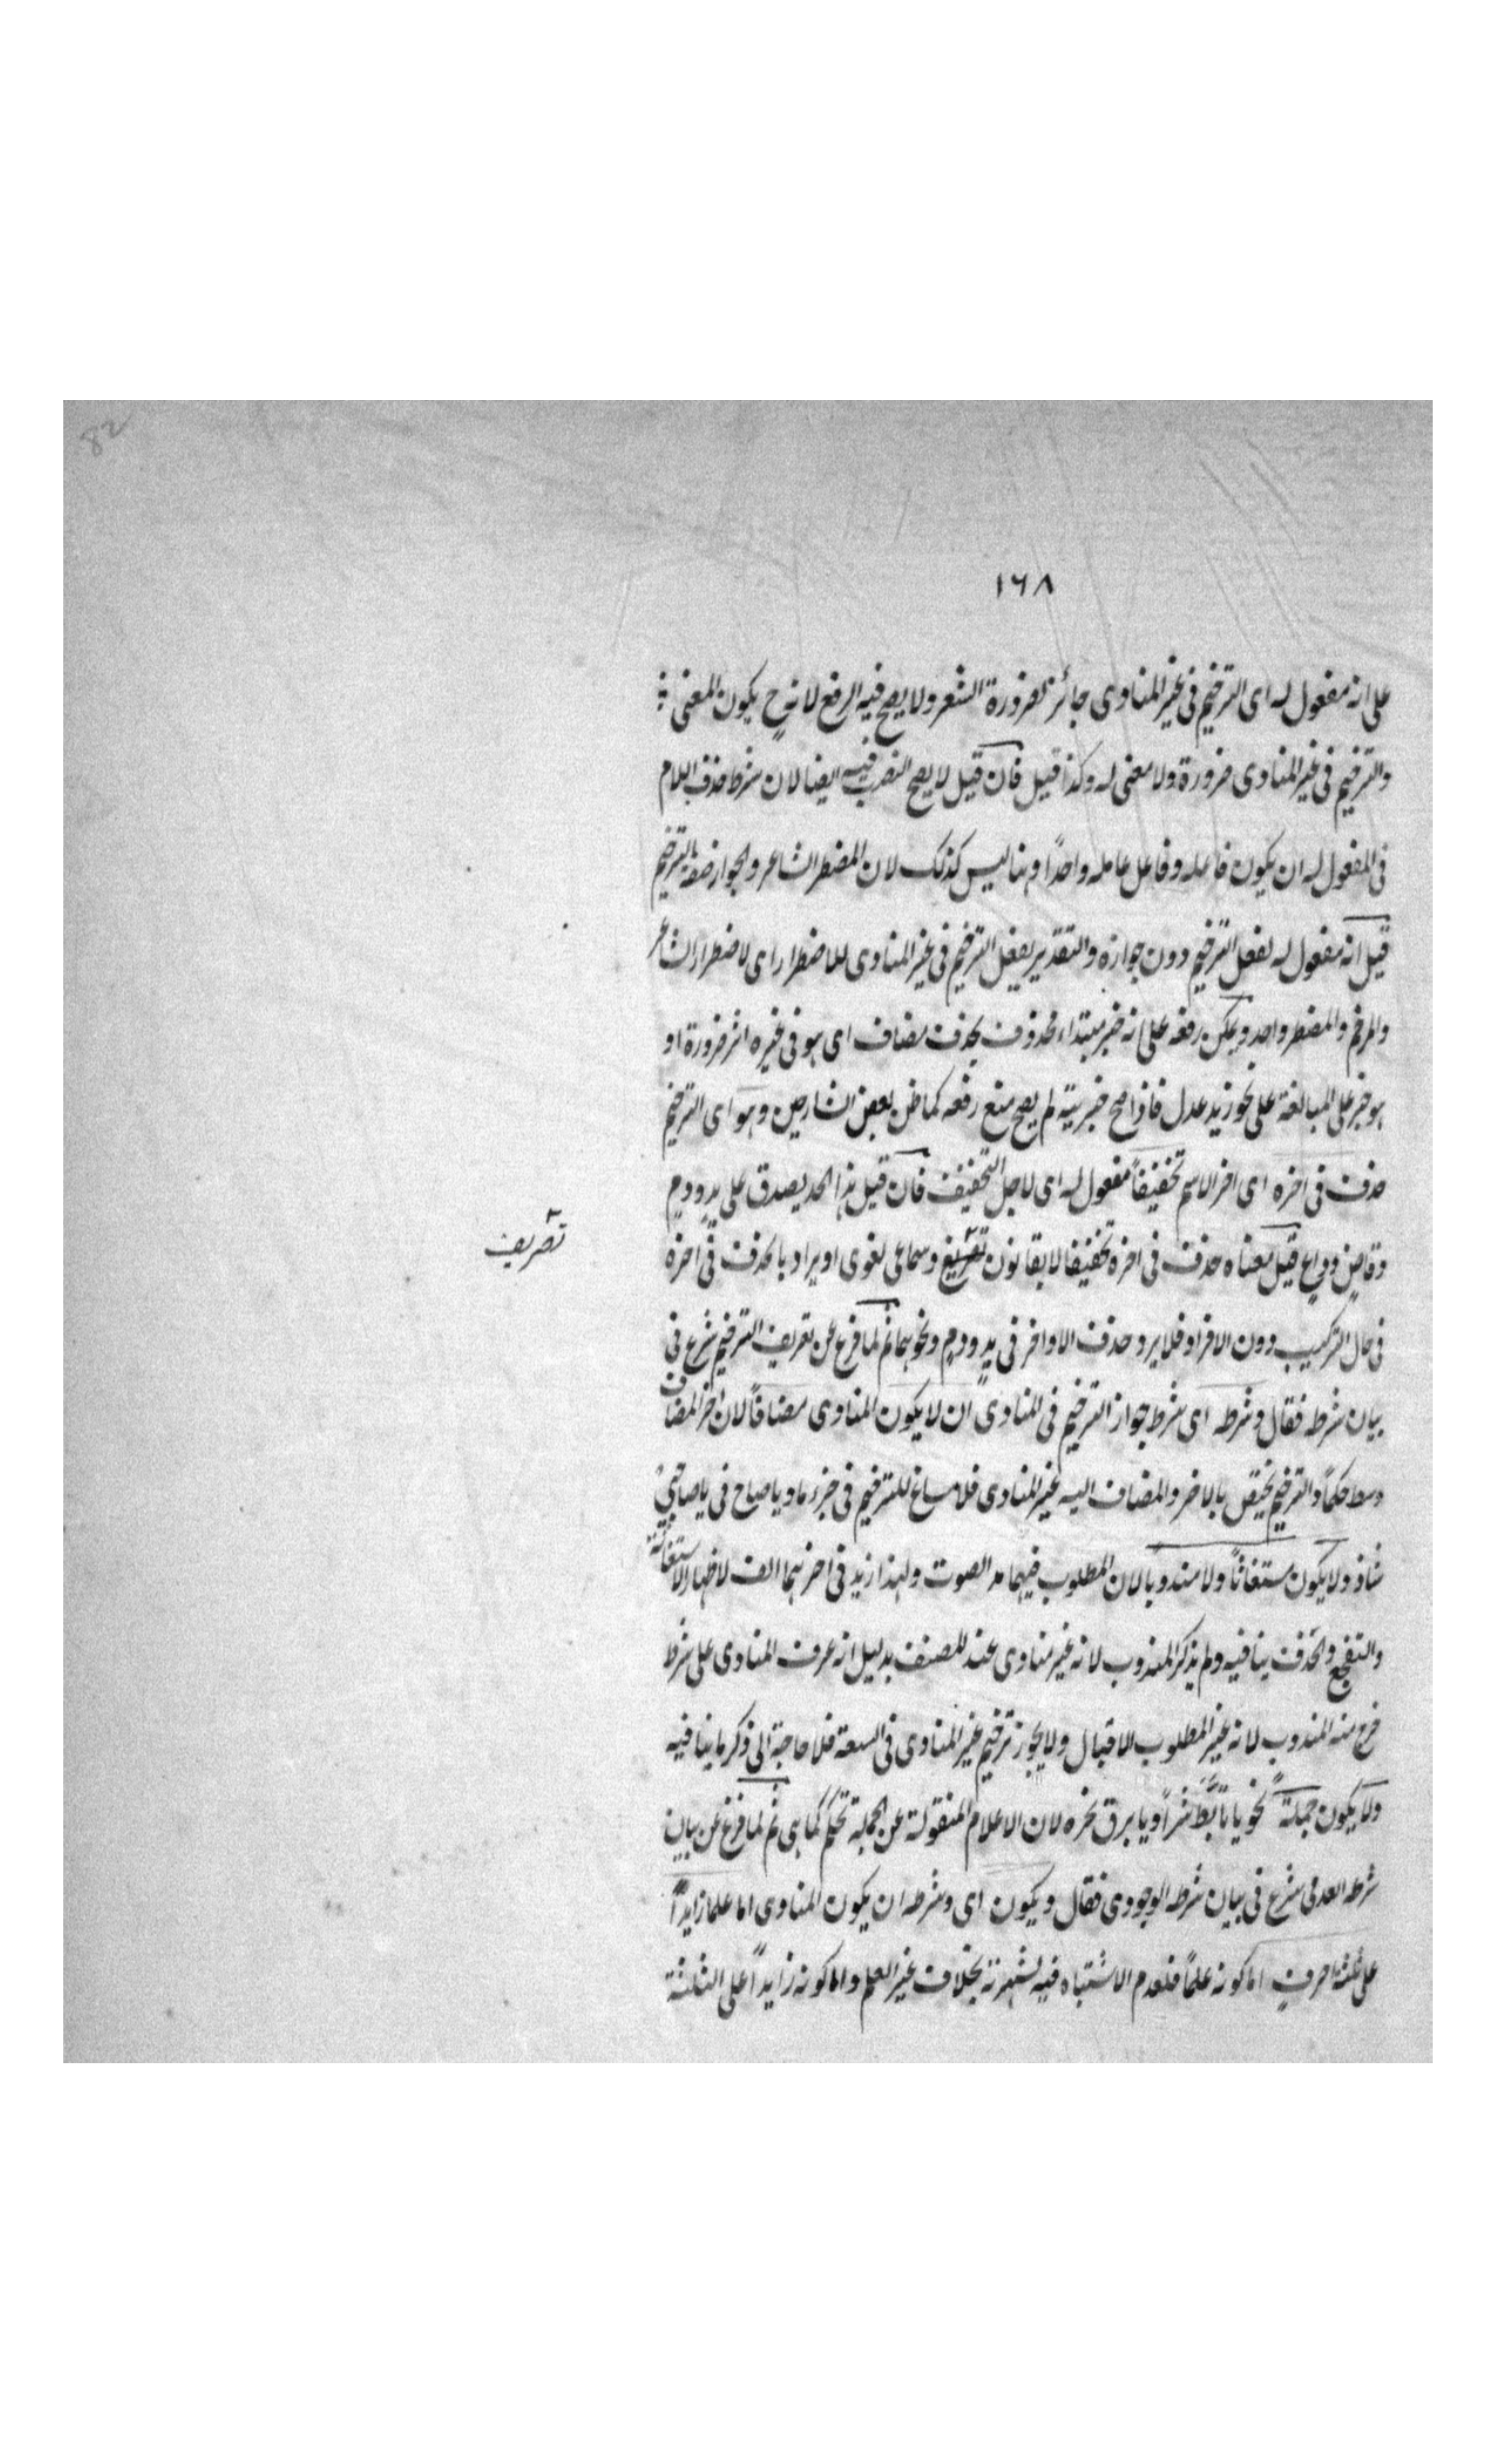 82
١٦٨
على انه مفعول له اى الترخيم فى غير المنادى جائز لضرورة الشعر ولا يصح فيه الرفع لانه ح يكون المعنى
والترخيم فى غير المنادى ضرورة ولا معنى له وكذا قيل فان قيل لا يصح النصب فيه ايضا لان شرط حذف اللام
فى المفعول له ان يكون فاعله وفاعل عامله واحدًا وهنا ليس كذلك لان المضطر الشاعر والجواز صفة الترخيم
قيل انه مفعول له لفعل الترخيم دون جوازه والتقدير يفعل الترخيم فى غير المنادى للاضطرار اى لاضطرار الشاعر
والمرخم والمضطر واحد ويمكن رفعه على انه خبر مبتداء محذوف بحذف مضاف اى هو فى غيره اثر ضرورة او
هو خبر على المبالغة على نحو زيد عدل فاذا صح خبريته لم يصح منع رفعه كما ظن بعض الشارحين وهو اى الترخيم
حذف فى اخره اى اخر الاسم تخفيفاً مفعول له اى لاجل التخفيف فان قيل هذا الحد يصدق على يدٍ ودمٍ
وقاضٍ وداعٍ قيل معناه حذف فى اخره تخفيفا لا بقانون وسماعى لغوى او يراد بالحذف فى اخره
تصريف
فى حال التركيب دون الافراد فلا يرد حذف الاواخر فى يدٍ ودمٍ ونحوهما ثم لما فرغ عن تعريف الترخيم شرع فى
بيان شرطه فقال وشرطه اى شرط جواز الترخيم فى المنادى ان لا يكون المنادى مضافاً لان اخر المضاف
وسط حكماً والترخيم يختص بالاخر والمضاف اليه غير المنادى فلا مساغ للترخيم فى جزءها ويا صاح فى يا صاحبى
شاذ ولا يكون مستغاثاً ولا مندوبا لان المطلوب فيهما مد الصوت ولهذا زيد فى اخرهما الف لاظهار الاستغاثة
والتفجع والحذف ينافيه ولم يذكر المندوب لانه غير منادى عند المصنف بدليل انه عرف المنادى على شرط
خرج منه المندوب لانه غير المطلوب الاقبال ولا يجوز ترخيم غير المنادى فى السعة فلا حاجة الى ذكر ما ينافيه
ولا يكون جملةً نحو يا تأبّط شراً ويا برق نحره لان الاعلام المنقولة عن الجملة تحكم كما هى ثم لما فرغ عن بيان
شرطه العدمى شرع فى بيان شرطه الوجودى فقال ويكون اى وشرطه ان يكون المنادى اما علما زايداً
على ثلثة احرفٍ اما كونه علماً فلعدم الاشتباه فيه لشهرته بخلاف غير العلم واما كونه زايداً على الثلثة